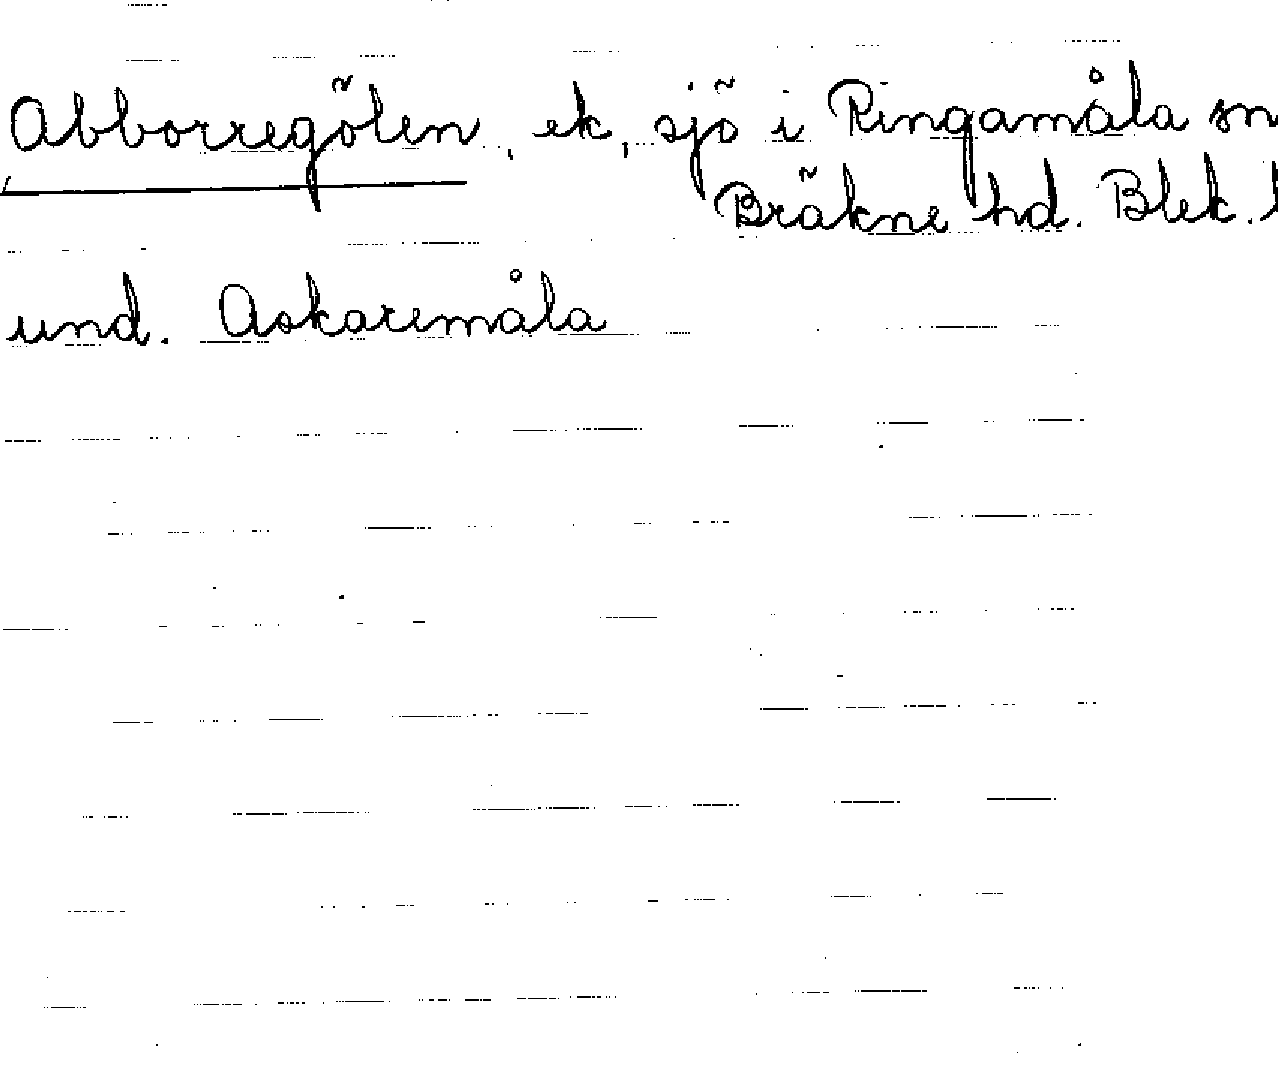 Abborregölen, ek, sjö i Ringamåla sn
Bräkne hd. Blek. l
und. Askaremåla